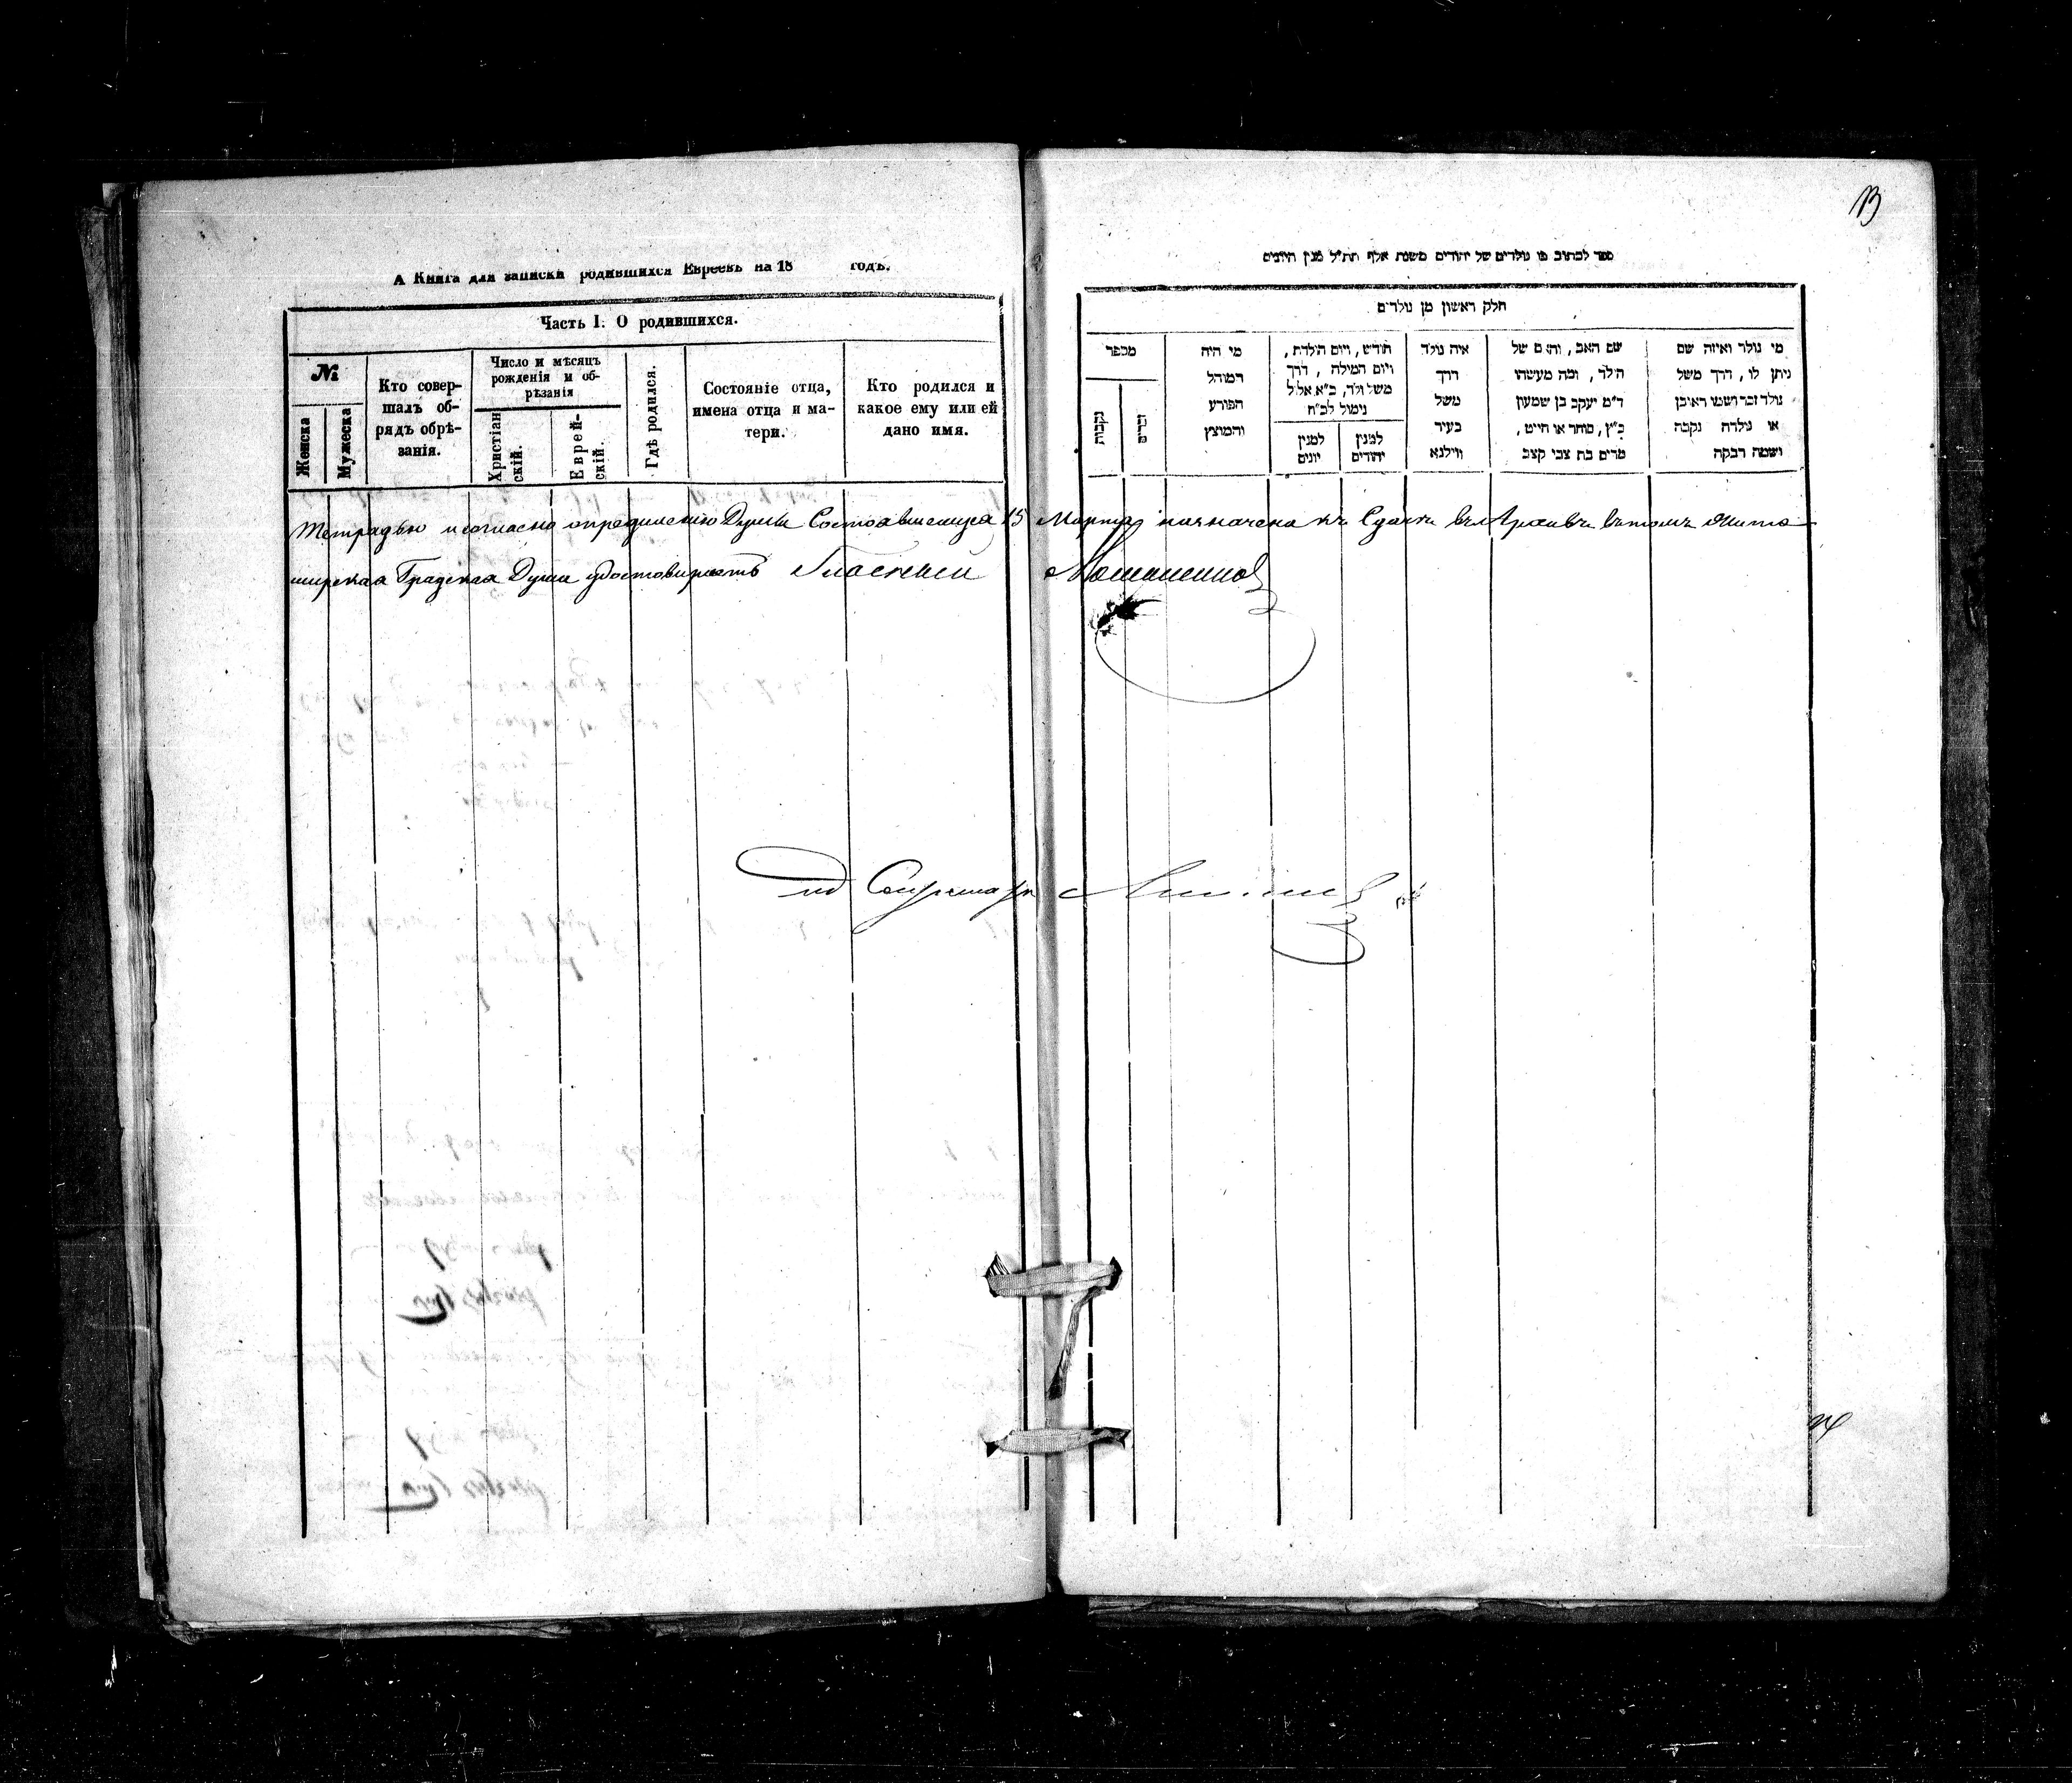 13
А Книга для записки родившихся Евреевъ на 18 годъ.
Часть I. О родившихся.
№
Женска
Мужеска
Кто совер-
шалъ об-
рядъ обрѣ-
занія.
Число и мѣсяцъ
рожденія и об-
рѣзанія
Христіан
скій.
Еврей-
скій.
Гдѣ родился.
Состояніе отца,
имена отца и ма-
тери.
Кто родился и
какое ему или ей
дано имя.
ספר לכתוב בו נולדים של יהודים משנת אלף תת״ל מנין היונים
חלק ראשון מן נולדים
מי נולד ואיזה שם
ניתן לו, דרך משל
נולד זכר ושמו ראובן
או נולדה נקבה
ושמה רבקה
שם האב, והאם של
הילד, ומה מעשהו
ד״מ יעקב בן שמעון
כ״ץ, סוחר או חייט,
מרים בת צבי קצב
איה נולד
דרך
משל
בעיר
ווילנא
חודש, ויום הולדת,
ויום המילה, דרך
משל נולד, כ״א אלול
נימול לכ״ח
למנין
יהודים
למנין
יונים
מי היה
המוהל
הפורע
והמוצץ
מספר
זכרים
נקבות
Тетрадью и согласно определенію Думы Состоявшемуся 15 Марта назначена къ Сдачѣ въ Архивъ въ томъ Жито-
мирская Градская Дума удостовѣряетъ Гласный
Секретарь